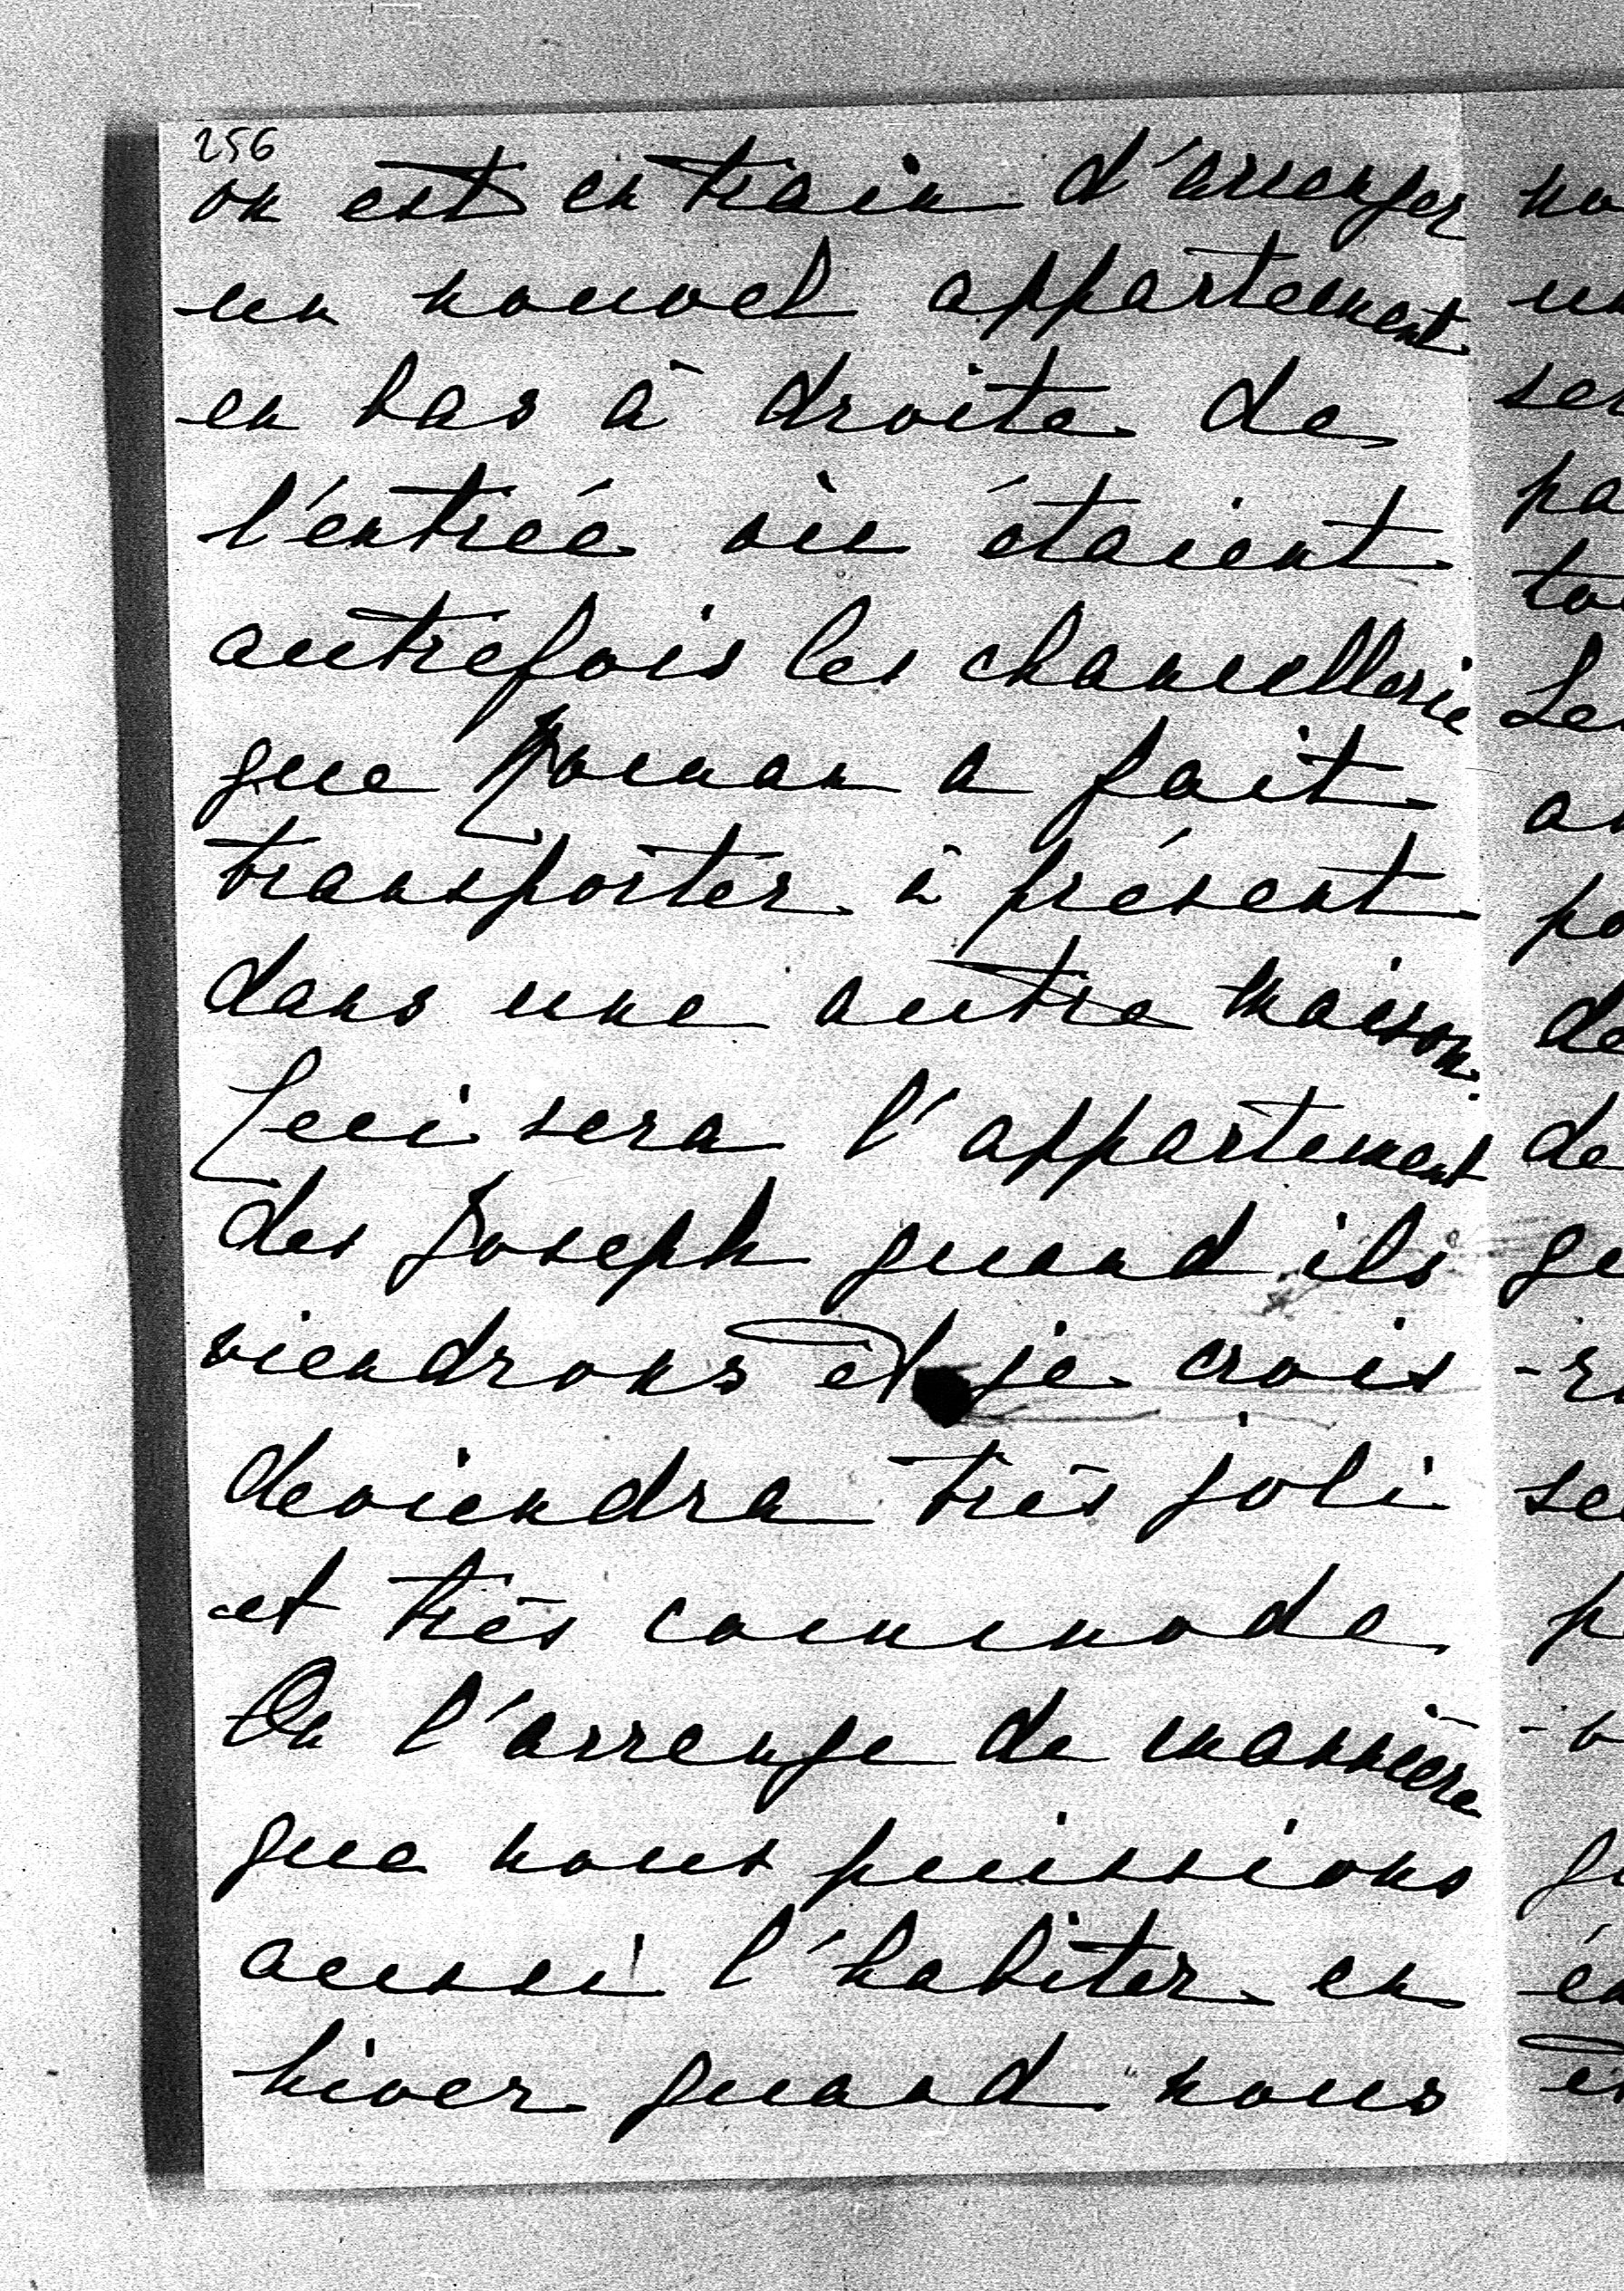 256
on est en train d'arrenger
un nouvel appartement
en bas à droite de
l'entrée où étaient
autrefois les chancellerie
que Roman a fait
transporter à présent
dans une autre maison.
Ceci sera l'appartement
des Joseph quand ils
viendrons et je crois
deviendra très joli
et très commode
On l'arrenge de mannière
que nous puissions
aussi l'habiter en
hiver quand nous